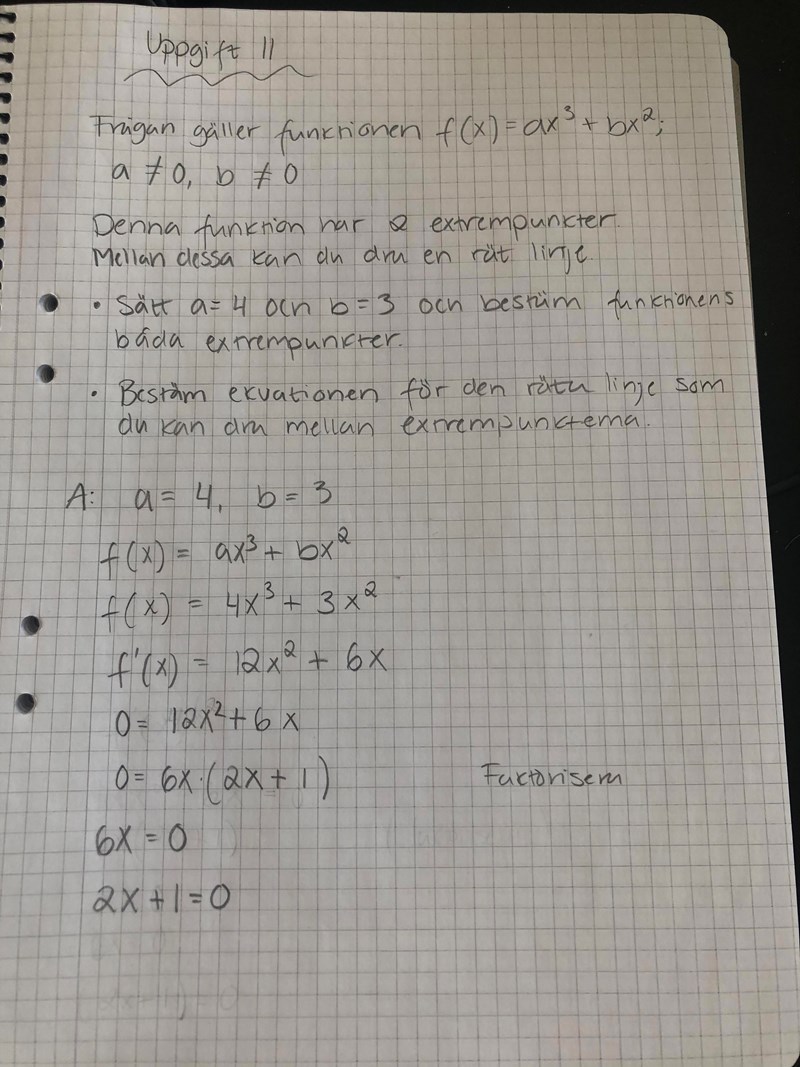 Uppgift 11
Frågan gäller funktionen f(x) = ax³ + bx²;
a ≠ 0, b ≠ 0
Denna funktion har 2 extrempunkter.
Mellan dessa kan du dra en rät linje.
• Sätt a = 4 och b = 3 och bestäm funktionens
båda extrempunkter.
• Bestäm ekvationen för den räta linje som
du kan dra mellan extrempunkterna.
A: a = 4, b = 3
f(x) = ax³ + bx²
f(x) = 4x³ + 3x²
f'(x) = 12x² + 6x
0 = 12x² + 6x
0 = 6x·(2x + 1) Faktorisera
6x = 0
2x + 1 = 0